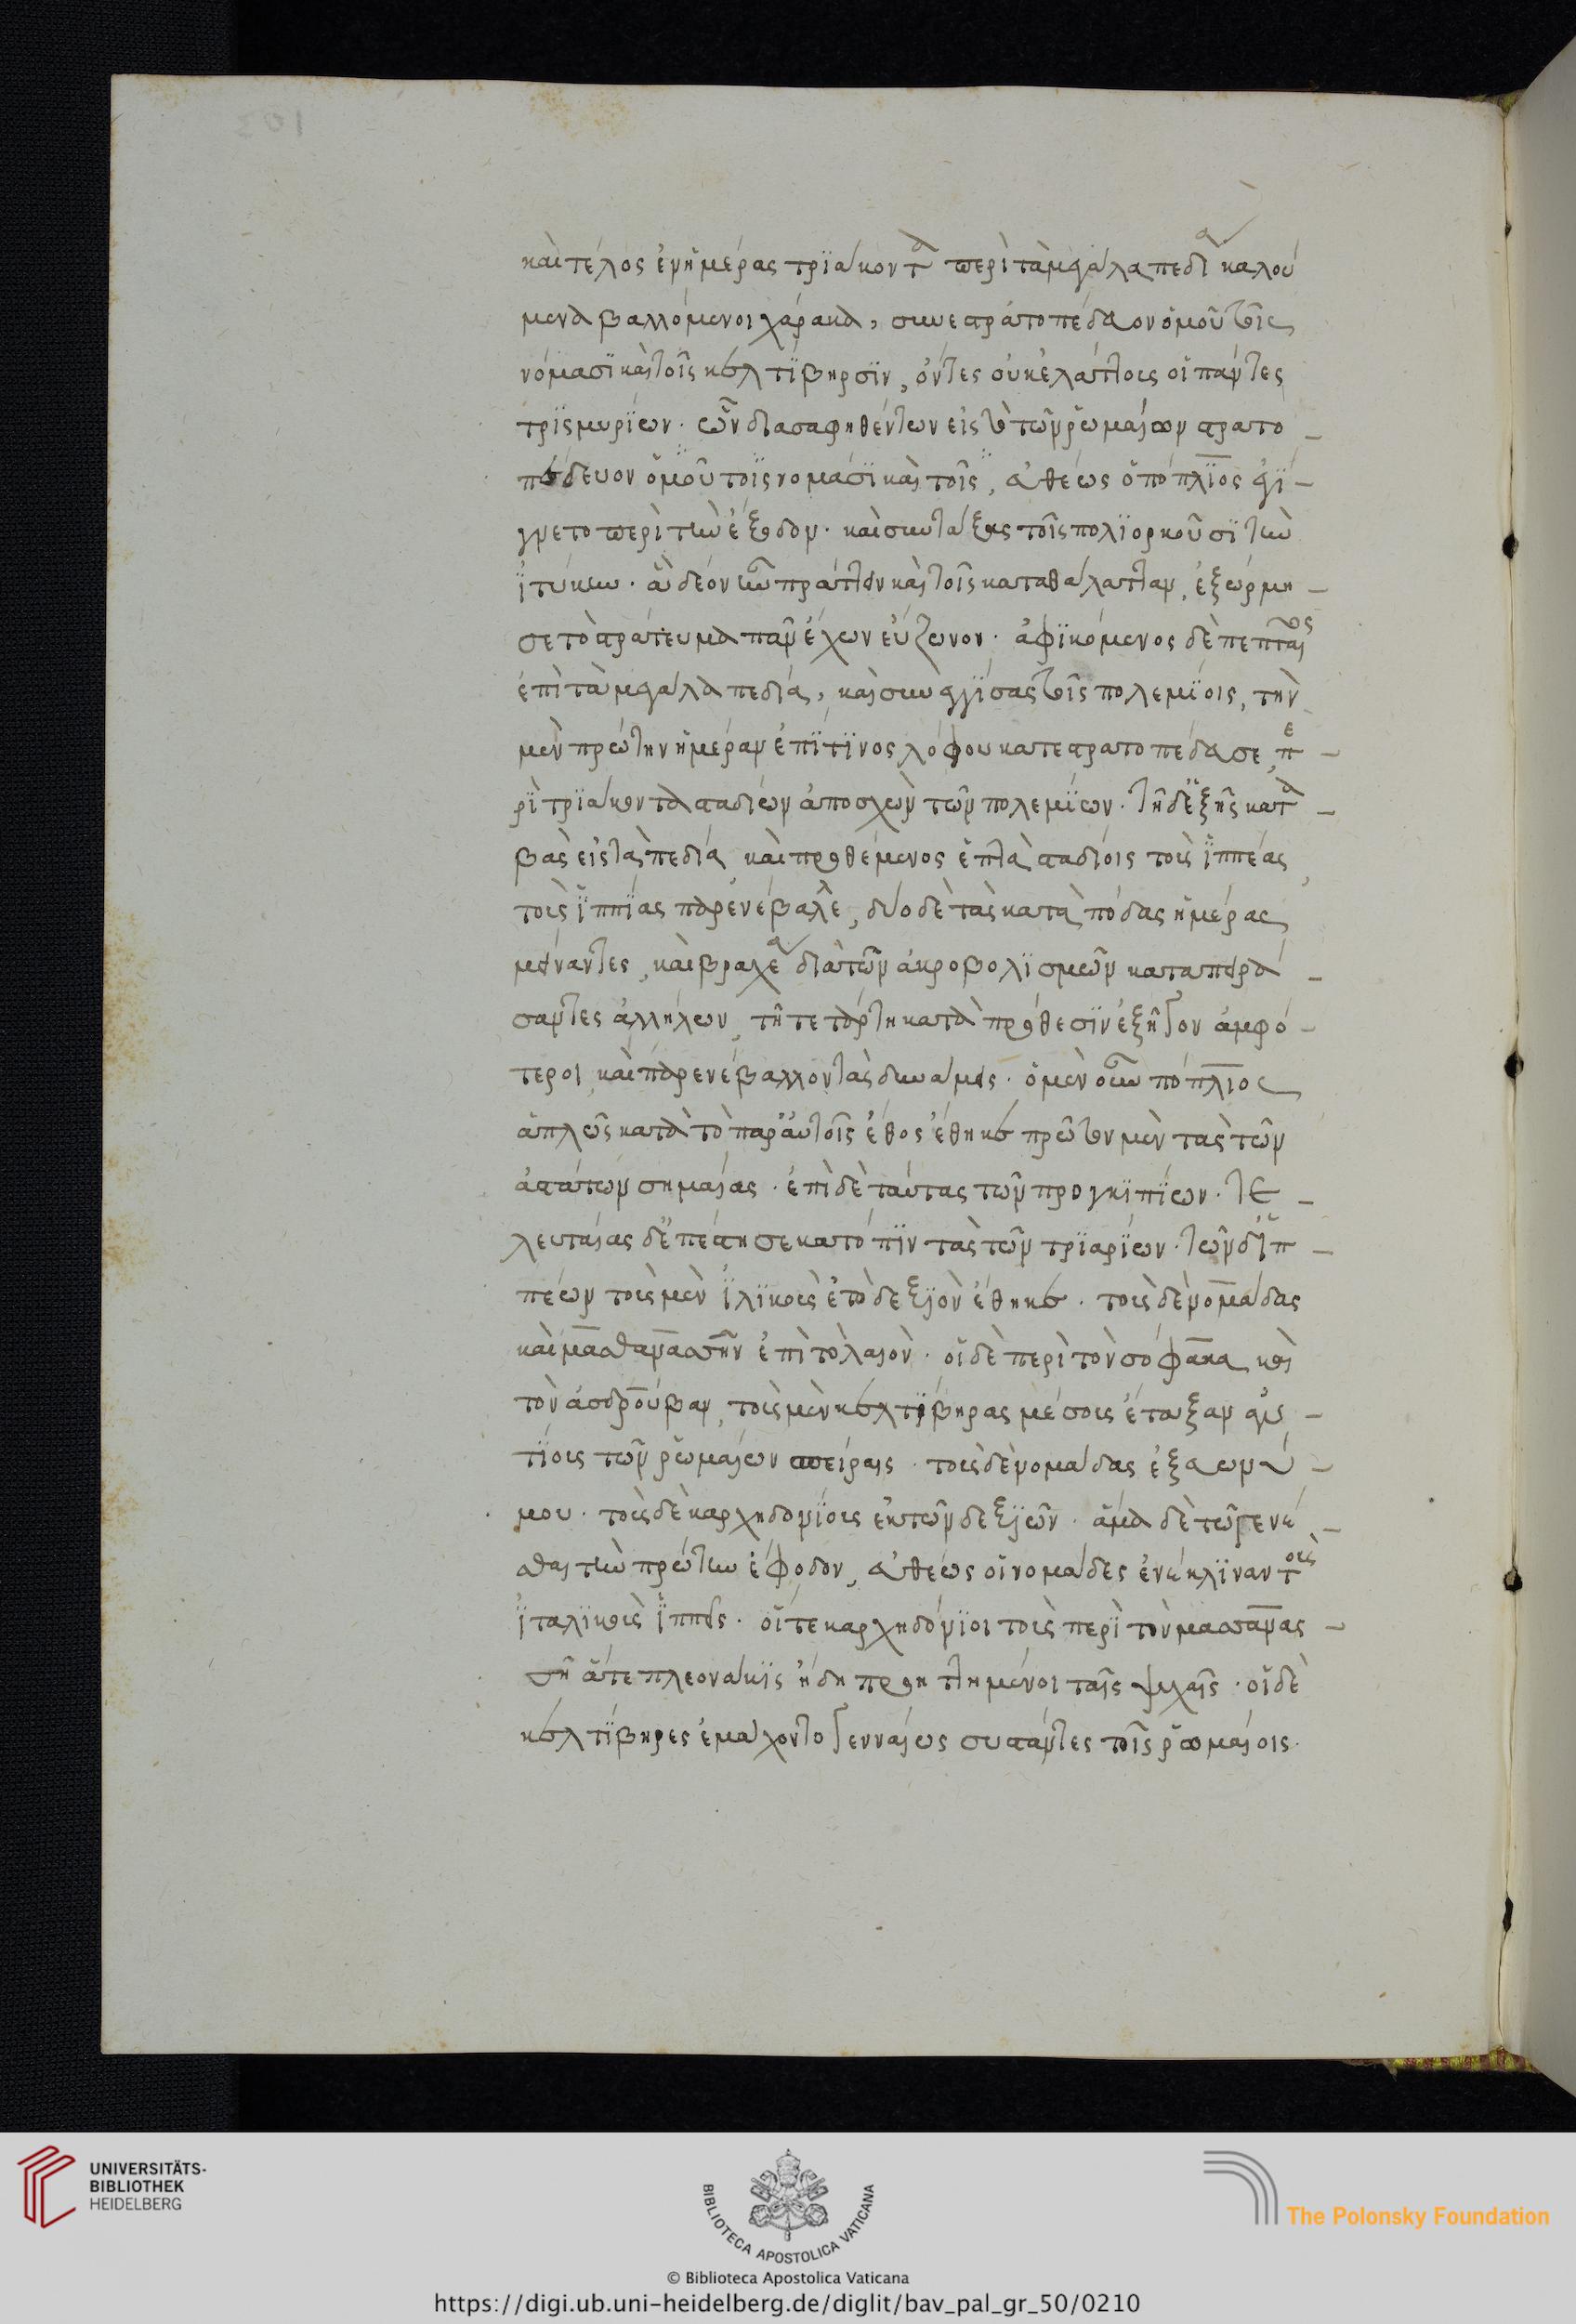 καὶ τέλος ἐν ἡμέραις τριάκοντα περὶ τὰ μεγάλα πεδία καλού
μενα βαλλόμενοι χάρακα, συνεστρατοπέδευον ὁμοῦ τοῖς
νόμασι καὶ τοῖς κελτίβηρσιν, ὄντες οὐκ ἐλάττους οἱ πάντες
τρισμυρίων. ὧν διασαφηθέντων εἰς τὸ τῶν ῥωμαίων στρατο –
πέδευον ὁμοῦ τοῖς νομάσι καὶ τοῖς, εὐθέως ὁ πόπλιος ἐγί –
γνετο περὶ τὴν ἔξοδον. καὶ συντάξας τοῖς πολιορκοῦσι τὴν
ἰτύκην. ἃ δέον ἦν πράττειν καὶ τοῖς κατὰ θάλατταν, ἐξώρμη –
σε τὸ στράτευμα πᾶν ἔχων εὔζωνον. ἀφικόμενος δὲ πεπταῖος
ἐπὶ τὰ μεγάλα πεδία, καὶ συνεγγίσας τοῖς πολεμίοις, τὴν
μὲν πρώτην ἡμέραν ἐπί τινος λόφου κατεστρατοπέδευσε, πε –
ρὶ τριάκοντα σταδίων ἀποσχὼν τῶν πολεμίων. τῇ δ' ἑξῆς κατα –
βὰς εἰς τὰ πεδία καὶ προθέμενος ἑπτὰ σταδίοις τοὺς ἱππέας
τοὺς ἱππίας παρενέβαλε, δύο δὲ τὰς κατὰ πόδας ἡμέρας
μείναντες, καὶ βραχέα διὰ τῶν ἀκροβολισμῶν καταπειρά –
σαντες ἀλλήλων, τῇ τετάρτῃ κατὰ πρόθεσιν ἐξῆγον ἀμφό –
τεροι, καὶ παρενέβαλλον τὰς δυνάμεις. ὁ μὲν οὖν πόπλιος
ἁπλῶς κατὰ τὸ παρ' αὐτοῖς ἔθος ἔθηκε πρῶτον μὲν τὰς τῶν
ἀστάτων σημαίας. ἐπὶ δὲ ταύτας τῶν προγκιπίων. τε –
λευταίας δ' ἐπέστησε κατόπιν τὰς τῶν τριαρίων. τῶν δ' ἱπ –
πέων τοὺς μὲν ἰλικοὺς ἐ τὸ δεξιὸν ἔθηκε. τοὺς δὲ νομάδας
καὶ μασθανασσην ἐπὶ τὸ λαιὸν. οἱ δὲ περὶ τὸν σόφακα καὶ
τὸν ἀσδρούβαν, τοὺς μὲν κελτίβηρας μέσους ἔταξαν ἐν
τίοις τῶν ῥωμαίων σπείραις. τοὺς δὲ νομάδας ἐξ εὐωνύ –
μου. τοὺς δὲ καρχηδονίους ἐκ τῶν δεξιῶν. ἅμα δὲ τῷ γενέ –
σθαι τὴν πρώτην ἔφοδον, εὐθέως οἱ νομάδες ἐνέκλιναν τοὺς
ἰταλικοὺς ἱππεῖς. οἵ τε καρχηδόνιοι τοὺς περὶ τὸν μασσανας –
σῆ ἅτε πλεονάκις ἤδη προηττημένοι ταῖς ψυχαῖς. οἱ δὲ
κελτίβηρες ἐμάχοντο γενναίως συστάντες τοῖς ῥωμαίοις.
UNIVERSITÄTS-
BIBLIOTHEK
HEIDELBERG
BIBLIOTECA APOSTOLICA VATICANA
The Polonsky Foundation
© Biblioteca Apostolica Vaticana
https://digi.ub.uni-heidelberg.de/diglit/bav_pal_gr_50/0210